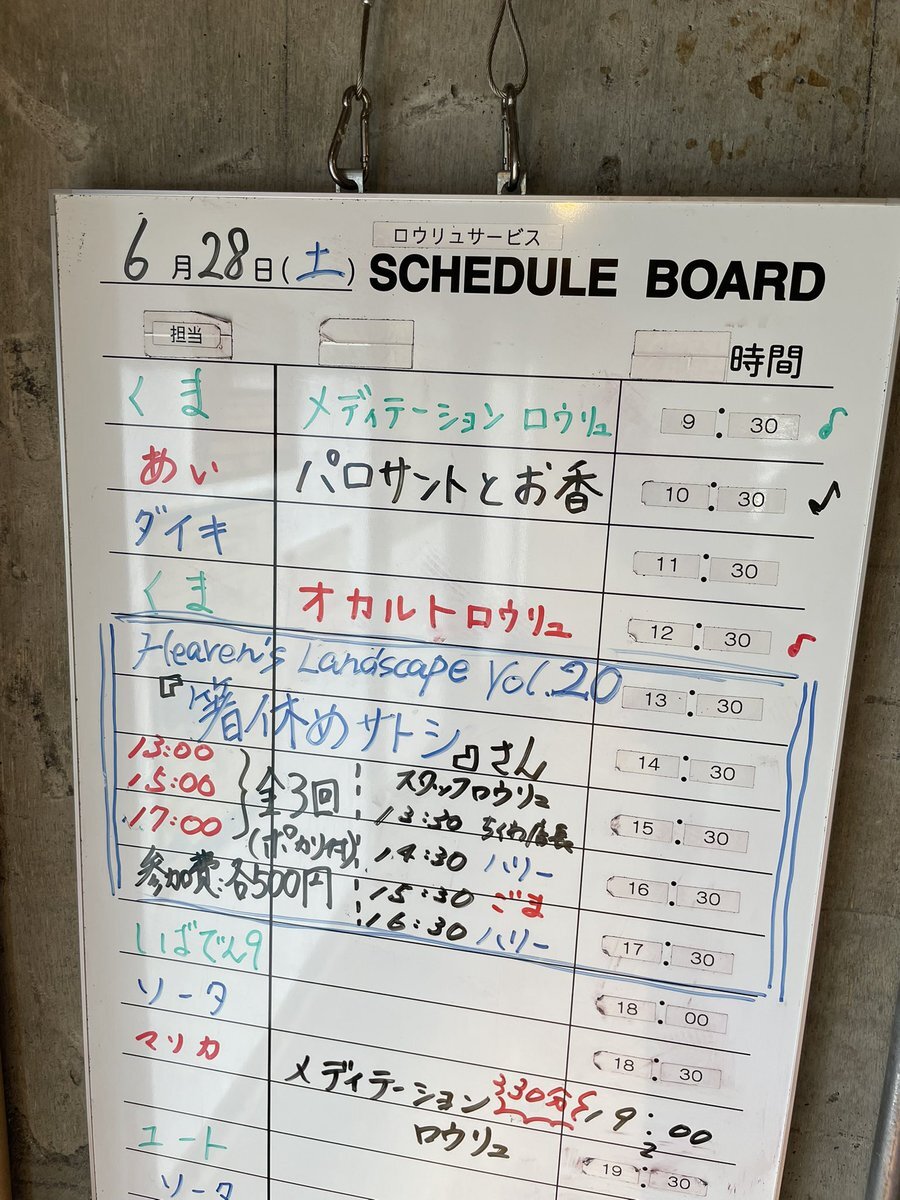 ロウリュサービス
6月28日(土) SCHEDULE BOARD
担当 時間
くま メディテーション ロウリュ 9:30
あい パロサントとお香 10:30
ダイキ 11:30
くま オカルトロウリュ 12:30
Heaven's Landscape Vol.20 13:30
『箸休めサトシ』さん 14:30
13:00
15:00 全3回 スタッフロウリュ
17:00 (ポカリ付) 13:30 ちくわ店長 15:30
14:30 ハリー
参加費:各500円 15:30 ごま 16:30
16:30 ハリー 17:30
しばでん9
ソータ 18:00
マリカ 18:30
メディテーション 30分 19:00
ロウリュ
ユート 19:30
ソータ